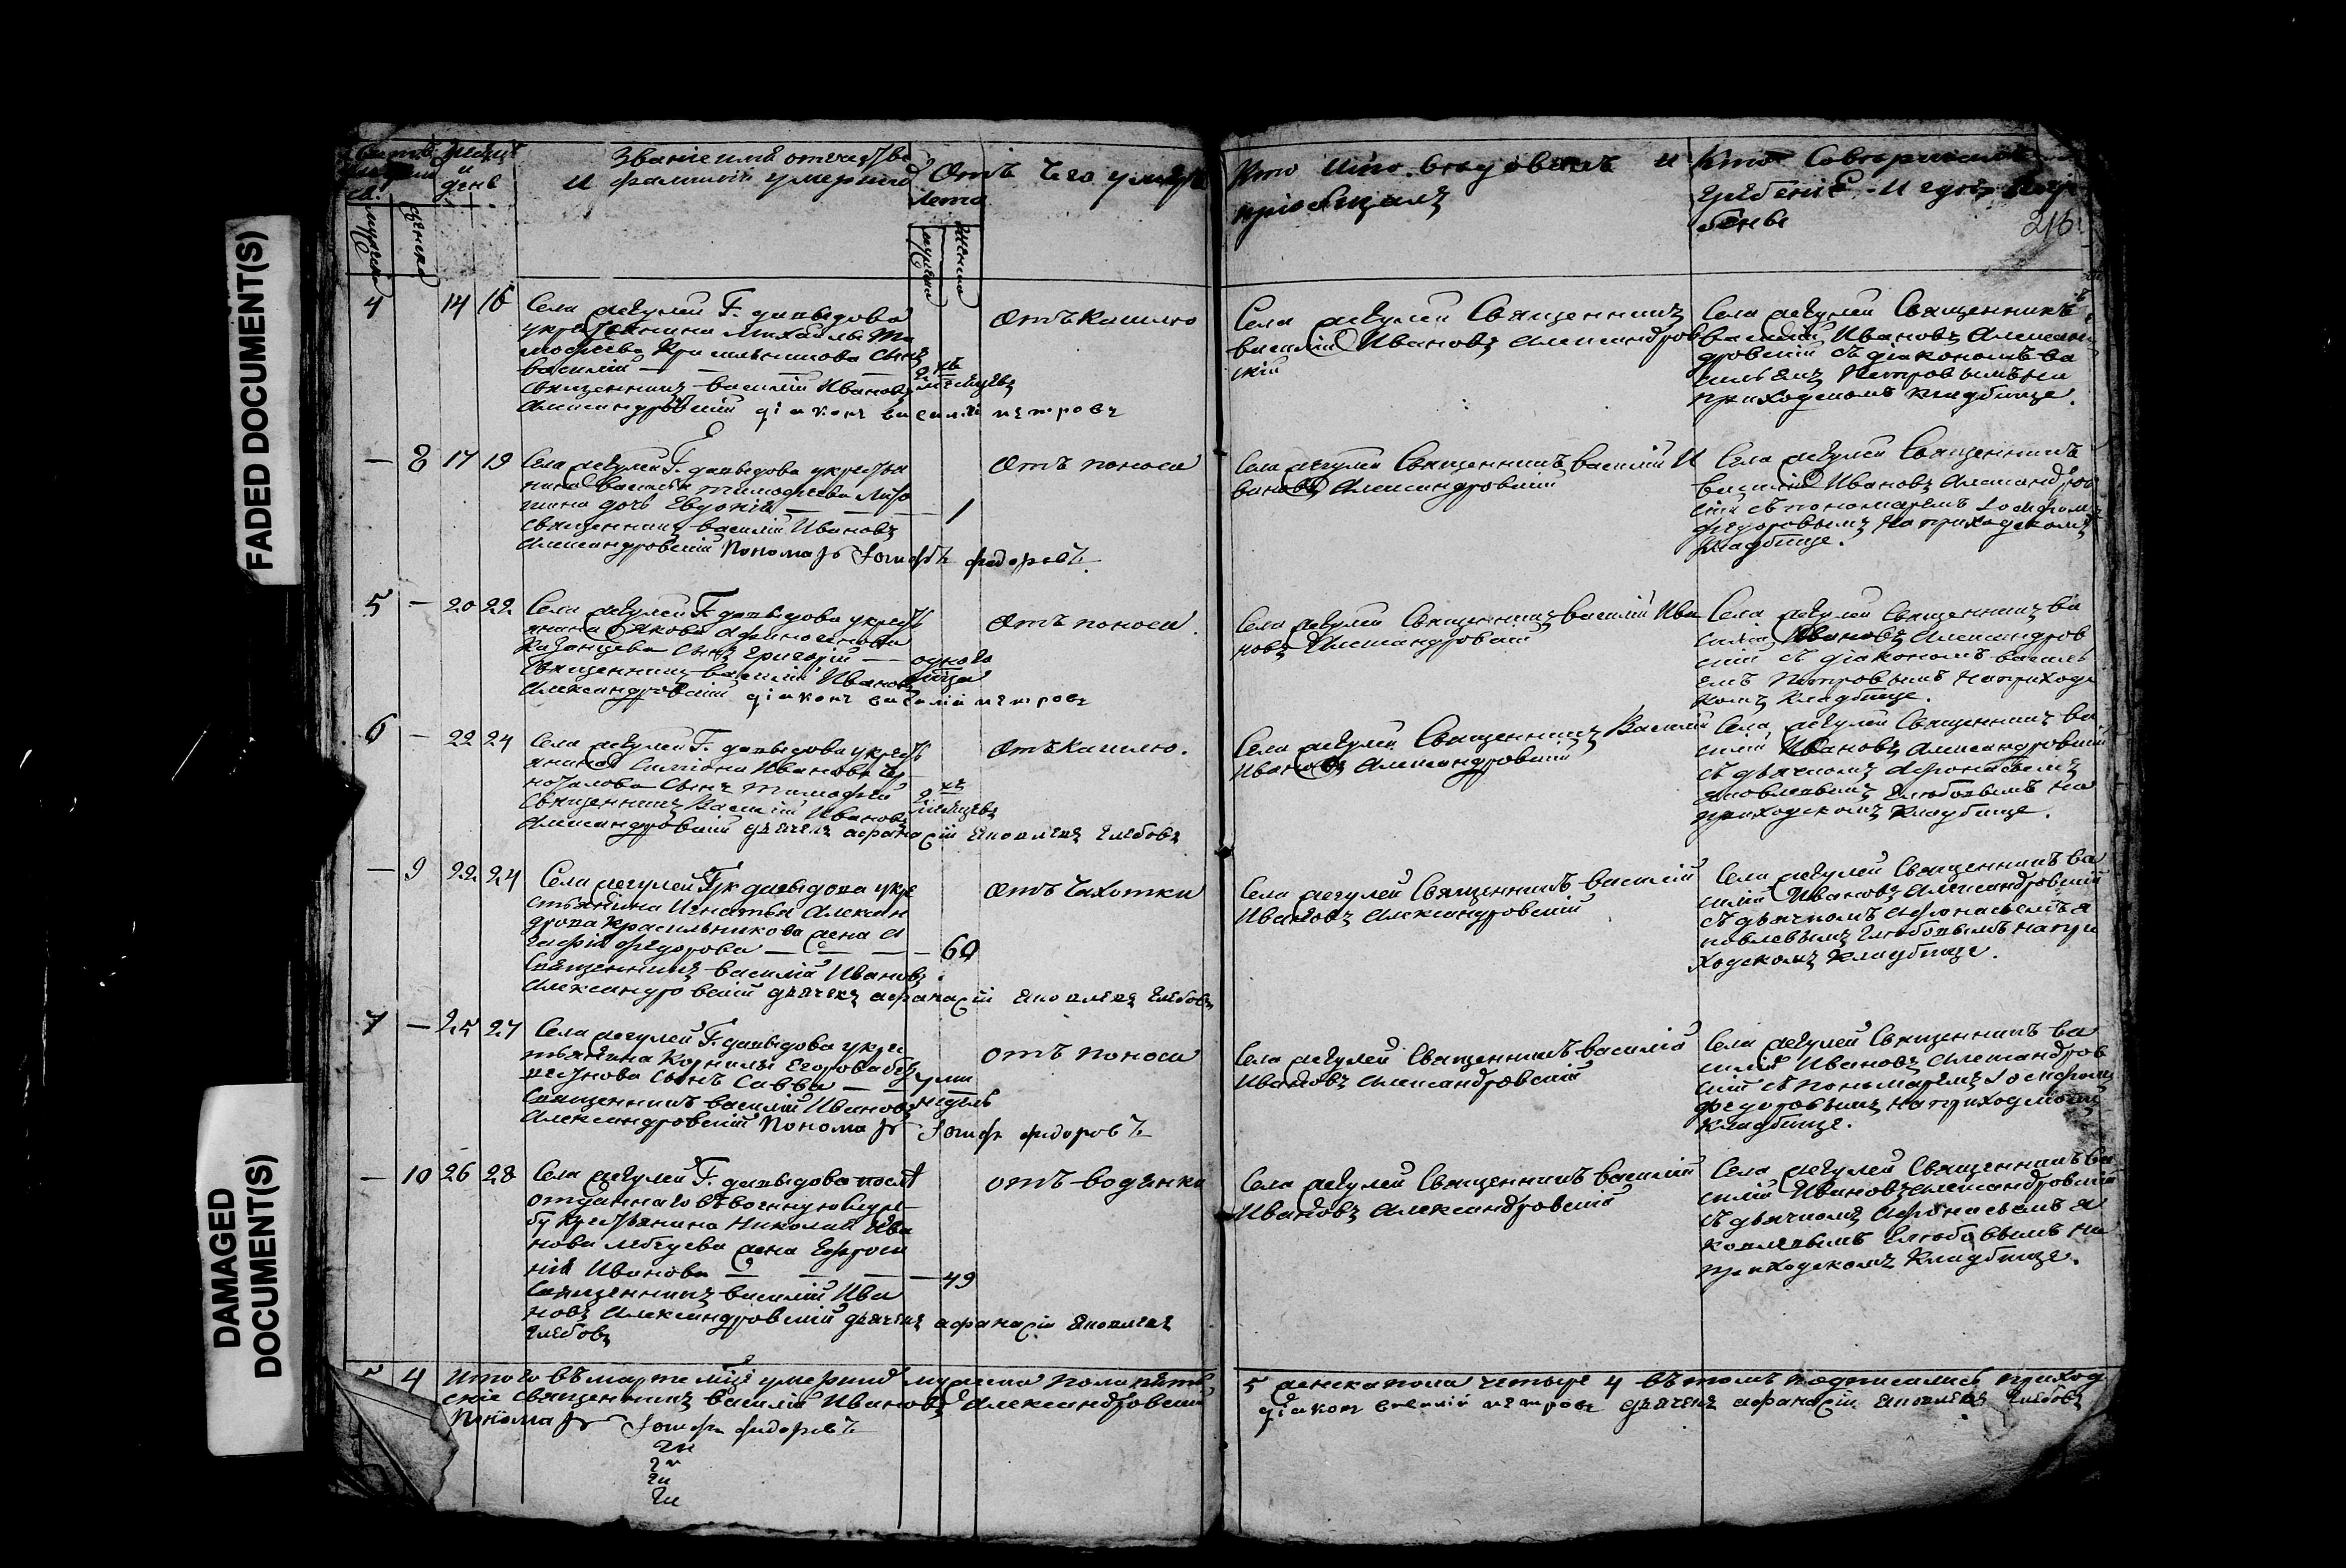 FADED DOCUMENT(S)
DAMAGED
DOCUMENT(S)
Мѣсяцъ
и
день
Званіе имя отчество
и фамилія умершихъ
Лета
Отъ чего умеръ
Кто исповедовалъ и
приобщалъ
Кто совершалъ
погребеніе и гдѣ погре
бены
216
4 14 16
Села Жегулей Г. Давыдова
крестьянина Михайлы Ти
мофеева Красильникова сынъ
Василій
2хъ
месяцевъ
Священникъ Василій Ивановъ
Александровскій діаконъ Василій Петровъ
Отъ кашлю
Села Жегулей Священникъ
Василій Ивановъ Александров
скій
Села Жегулей Священникъ
Василій Ивановъ Алексан
дровскій съ діакономъ Ва
сильемъ Петровымъ на
приходскомъ кладбище.
— 8 17 19
Села Жегулей Г. Давыдова крестья
нина Василья Тимофеева
дочь Евдокія
1
Священникъ Василій Ивановъ
Александровскій Пономарь Іосифъ Федоровъ.
Отъ поноса
Села Жегулей Священникъ Василій И
вановъ Александровскій
Села Жегулей Священникъ
Василій Ивановъ Александров
скій съ пономаремъ Іосифомъ
Федоровымъ на приходскомъ
кладбище.
5 — 20 22
Села Жегулей Г. Давыдова крест
янина Якова Афиногенова
Казанцева сынъ Григорій
одного
мѣсяца
Священникъ Василій Ивановъ
Александровскій діаконъ Василій Петровъ
Отъ поноса
Села Жегулей Священникъ Василій Ива
новъ Александровскій
Села Жегулей Священникъ Ва
силій Ивановъ Александров
скій съ діакономъ Василь
емъ Петровымъ на приходс
комъ кладбище.
6 — 22 24
Села Жегулей Г. Давыдова крест
янина Симіона Иванова
сынъ Тимофей
2хъ
месяцевъ
Священникъ Василій Ивановъ
Александровскій дьячекъ Афанасій Яковлевъ Глебовъ
Отъ кашлю.
Села Жегулей Священникъ Василій
Ивановъ Александровскій
Села Жегулей Священникъ Ва
силій Ивановъ Александровскій
съ дьячкомъ Афонасьемъ
Яковлевымъ Глебовымъ на
приходскомъ кладбище.
— 9 22 24
Села Жегулей Гр. Давыдова кре
стьянина Игнатья Алексан
дрова Красильникова жена А
гафія Федорова
60
Священникъ Василій Ивановъ
Александровскій дьячекъ Афанасій Яковлевъ Глебовъ
Отъ чахотки
Села Жегулей Священникъ Василій
Ивановъ Александровскій
Села Жегулей Священникъ Ва
силій Ивановъ Александровскій
съ дьячкомъ Афонасьемъ Я
ковлевымъ Глебовымъ на при
ходскомъ кладбище.
7 — 25 27
Села Жегулей Г. Давыдова крес
тьянина Корнилы Егорова
сынъ Савва
недель
Священникъ Василій Ивановъ
Александровскій Пономарь Іосифъ Федоровъ
Отъ поноса
Села Жегулей Священникъ Василій
Ивановъ Александровскій
Села Жегулей Священникъ Ва
силій Ивановъ Александров
скій съ пономаремъ Іосифомъ
Федоровымъ на приходскомъ
кладбище.
— 10 26 28
Села Жегулей Г. Давыдова после
отданнаго въ военную служ
бу крестьянина Николая Ива
нова Лебедева жена Ефроси
нія Иванова
49
Священникъ Василій Ива
новъ Александровскій дьячекъ Афанасій Яковлевъ
Глебовъ
Отъ водянки
Села Жегулей Священникъ Василій
Ивановъ Александровскій
Села Жегулей Священникъ Ва
силій Ивановъ Александровскій
съ дьячкомъ Афонасьемъ Я
ковлевымъ Глебовымъ на
приходскомъ кладбище.
5 4 Итого въ марте мѣсяце умершихъ мужеска пола пять
5 женска пола четыре 4 въ томъ подписались приход
скіе священникъ Василій Ивановъ Александровскій
діаконъ Василій Петровъ дьячекъ Афанасій Яковлевъ Глебовъ
Пономарь Іосифъ Федоровъ